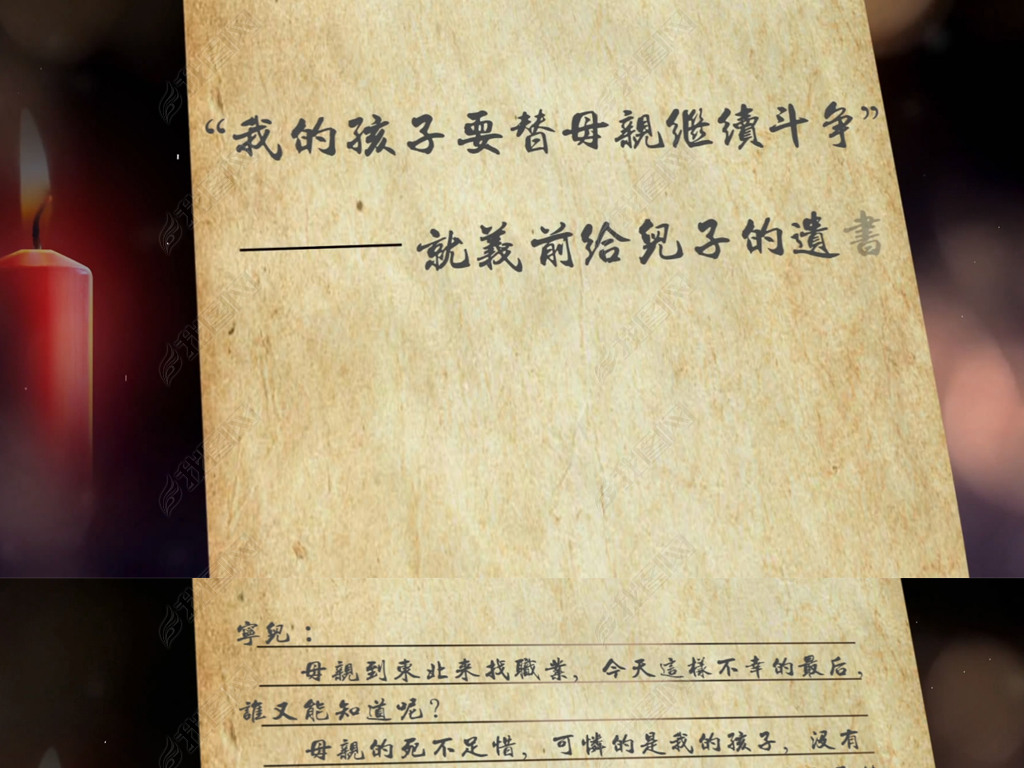 “我的孩子要替母親继續斗争”
——就義前给兒子的遺書
寧兒：
母親到東北来找職業，今天這樣不幸的最后，
誰又能知道呢？
母親的死不足惜，可憐的是我的孩子，没有